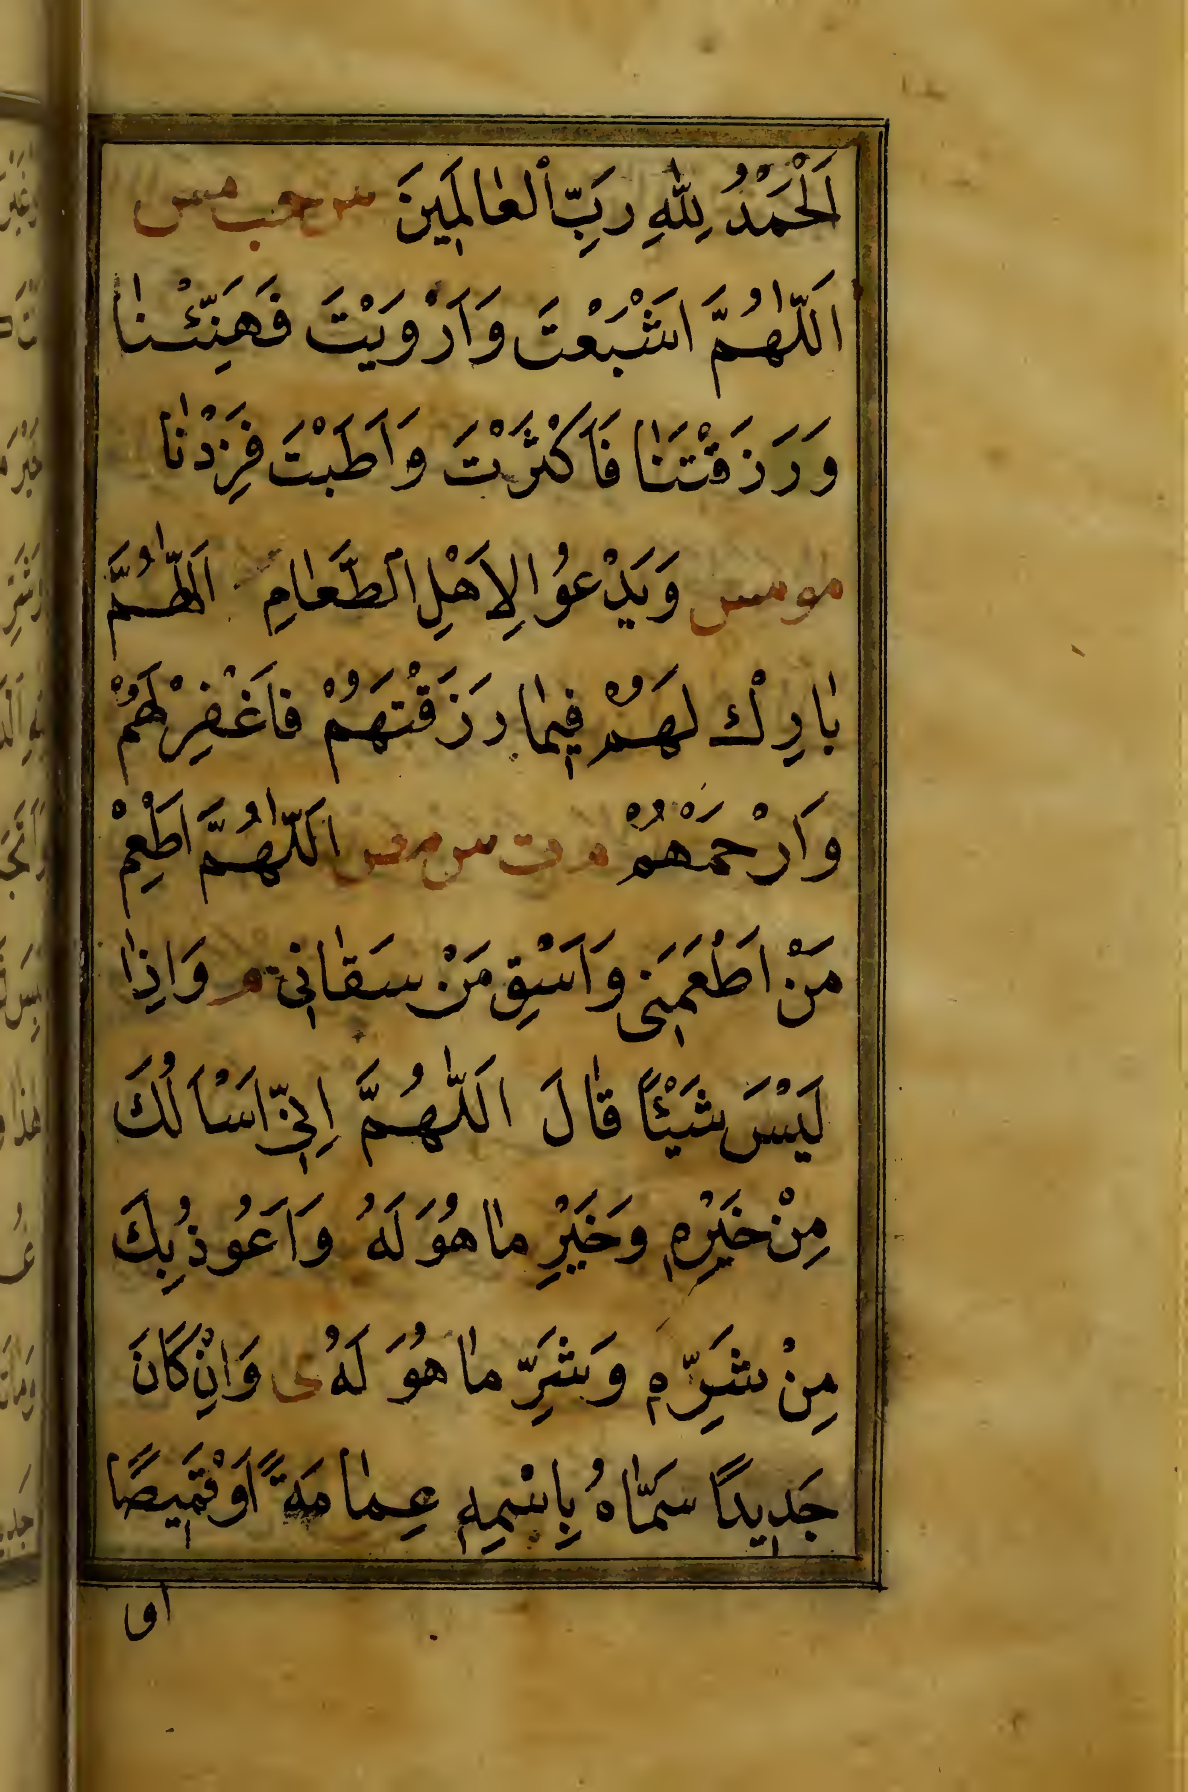 اَلْحَمْدُ لِلّٰهِ رَبِّ الْعٰالَمِينَ س حب مس
اَللّٰهُمَّ اَشْبَعْتَ وَاَرْوَيْتَ فَهَنِّئْنٰا
وَرَزَقْتَنٰا فَاَكْثَرْتَ وَاَطَبْتَ فَزِدْنٰا
مو مص وَيَدْعُوا لِاَهْلِ الطَّعٰامِ اَللّٰهُمَّ
بٰارِكْ لَهُمْ فِيمٰا رَزَقْتَهُمْ فَاغْفِرْ لَهُمْ
وَارْحَمْهُمْ م ت س مص اَللّٰهُمَّ اَطْعِمْ
مَنْ اَطْعَمَنِى وَاَسْقِ مَنْ سَقٰانِى م وَاِذٰا
لَبِسَ شَيْئًا قٰالَ اَللّٰهُمَّ اِنِّى اَسْاَلُكَ
مِنْ خَيْرِهِ وَخَيْرِ مٰا هُوَ لَهُ وَاَعُوذُ بِكَ
مِنْ شَرِّهِ وَشَرِّ مٰا هُوَ لَهُ ى وَاِنْ كَانَ
جَدِيدًا سَمّٰاهُ بِاسْمِهِ عِمٰامَةً اَوْ قَمِيصًا
او